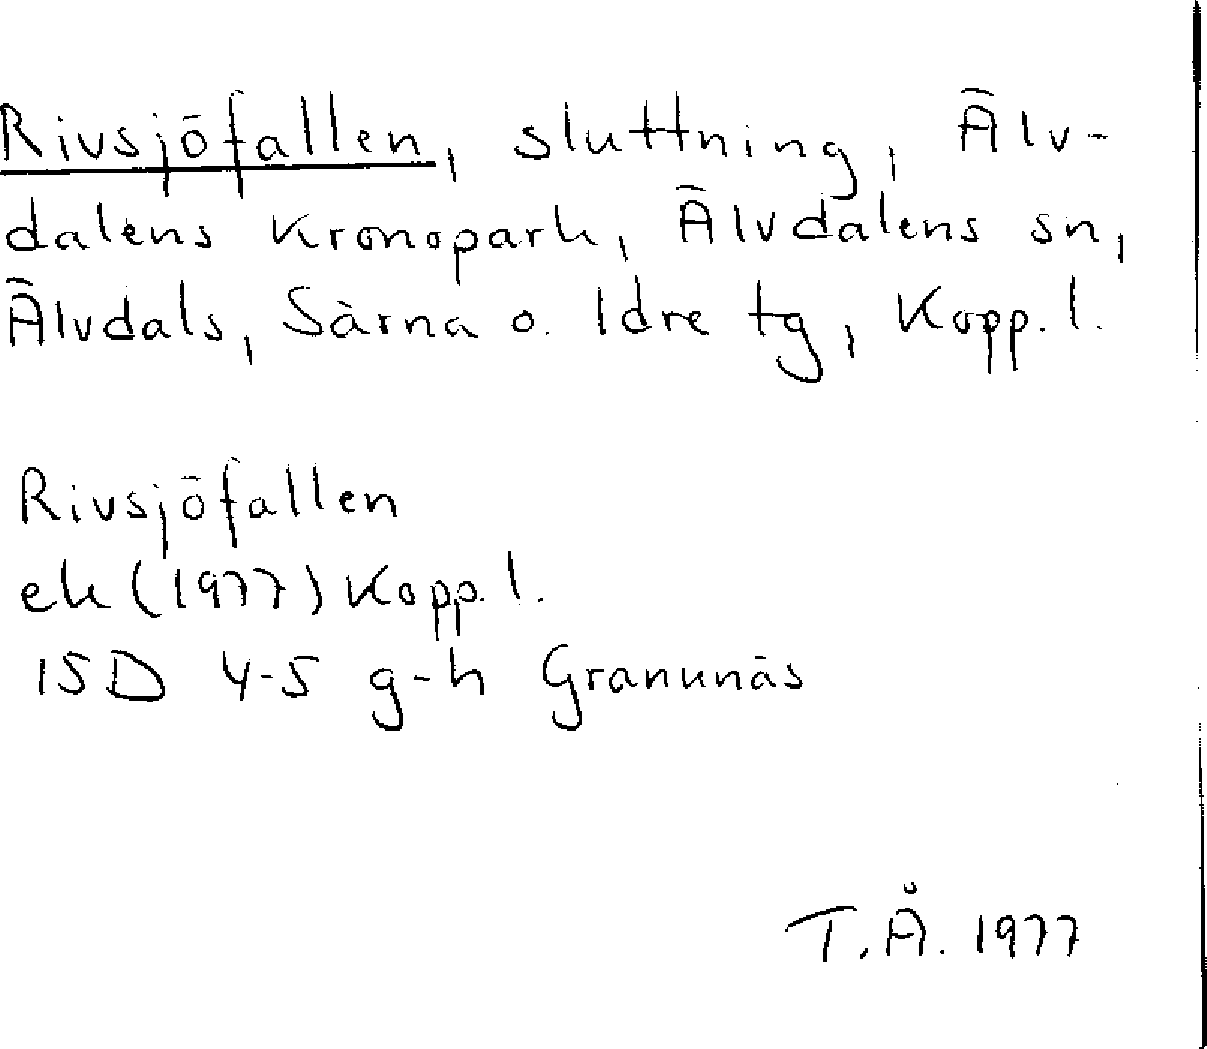 Rivsjöfallen, sluttning, Älv-
dalens kronopark, Älvdalens sn,
Älvdals, Särna o. Idre tg, Kopp. l.
Rivsjöfallen
ek (1977) Kopp. l.
15D 4-5 g-h Granunäs
T.Å. 1977